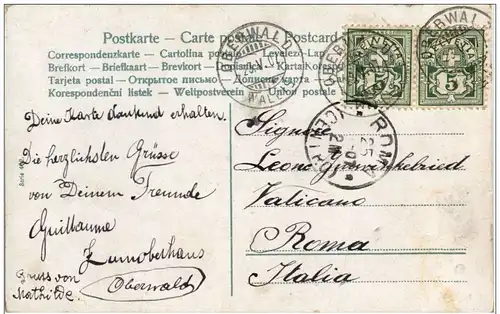 Postkarte – Carte postale – Postcard
Correspondenzkarte – Cartolina postale – Levelezo-Lap
Brefkort – Briefkaart – Brevkort –
Tarjeta postal – Открытое письмо –
Korespondenční listek – Weltpostverein – Union postale
OBERWALD
OBERWALD
OBERWALD
5 5
Deine Karte dankend erhalten.
Die herzlichsten Grüsse
von Deinem Freunde
Guillaume
Zumoberhaus
Oberwald
Gruss von
Mathilde.
Serie
ROMA
CENTRO
25
Signor
Leone
Vaticano
Roma
Italia